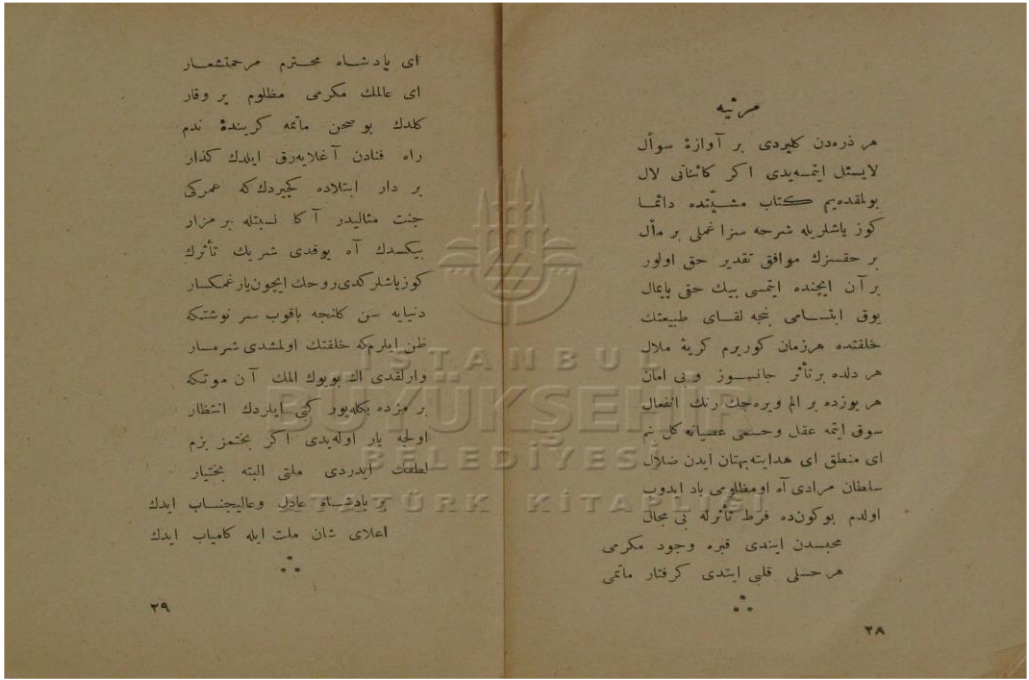 مرثیه
هر ذره‌دن کلیردی بر آوازهٔ سوأل
لایسئل ایتمه‌یدی اکر کائناتی لال
بولمقده‌یم کتاب مشیّتده دائما
کوز یاشلریله شرحه سزا غملی بر مأل
بر حقسزك موافق تقدیر حق اولور
بر آن ایچنده ایتمسی بیك حقی پایمال
یوق ابتسامی غنچه لقای طبیعتك
خلقتده هرزمان کوریرم کریهٔ ملال
هر دلده بر تأثر جانسوز و بی امان
هر یوزده بر الم ویره‌جك رنك انفعال
سوق ایتمه عقل وحسمی عصیانه کل بنم
ای منطق ای هدایته بهتان ایدن ضلال
سلطان مرادی آه اومظلومی یاد ایدوب
اولدم بوکون‌ده فرط تأثرله بی مجال
محبسدن ایندی قبره وجود مکرمی
هر حسلی قلبی ایتدی کرفتار ماتمی
٢٨
ای پادشاه محترم مرحمتشعار
ای عالمك مکرمی مظلوم پر وقار
کلدك بو صحن ماتمه کریندهٔ ندم
راه فنادن آغلایه‌رق ایلدك کذار
بر دار ابتلاده کچیردك‌که عمرکی
جنت مثالیدر آکا نسبتله بر مزار
بیکسدك آه یوقدی شریك تأثرك
کوزیاشلرکدی روحك ایچون یار غمکسار
دنیایه سن کلنجه باقوب سر نوشتکه
ظن ایلرم‌که خلقتك اولمشدی شرمسار
وارلقدی اك بویوك المك آن موتکه
بر مژده بکله‌یور کبی ایلردك انتظار
اولجه یار اوله‌یدی اکر بختمز بزم
لطفك ایدردی ملتی البته بختیار
بر پادشاه عادل وعالیجناب ایدك
اعلای شان ملت ایله کامیاب ایدك
٢٩
İSTANBUL
BÜYÜKŞEHİR
BELEDİYESİ
ATATÜRK KİTAPLIĞI